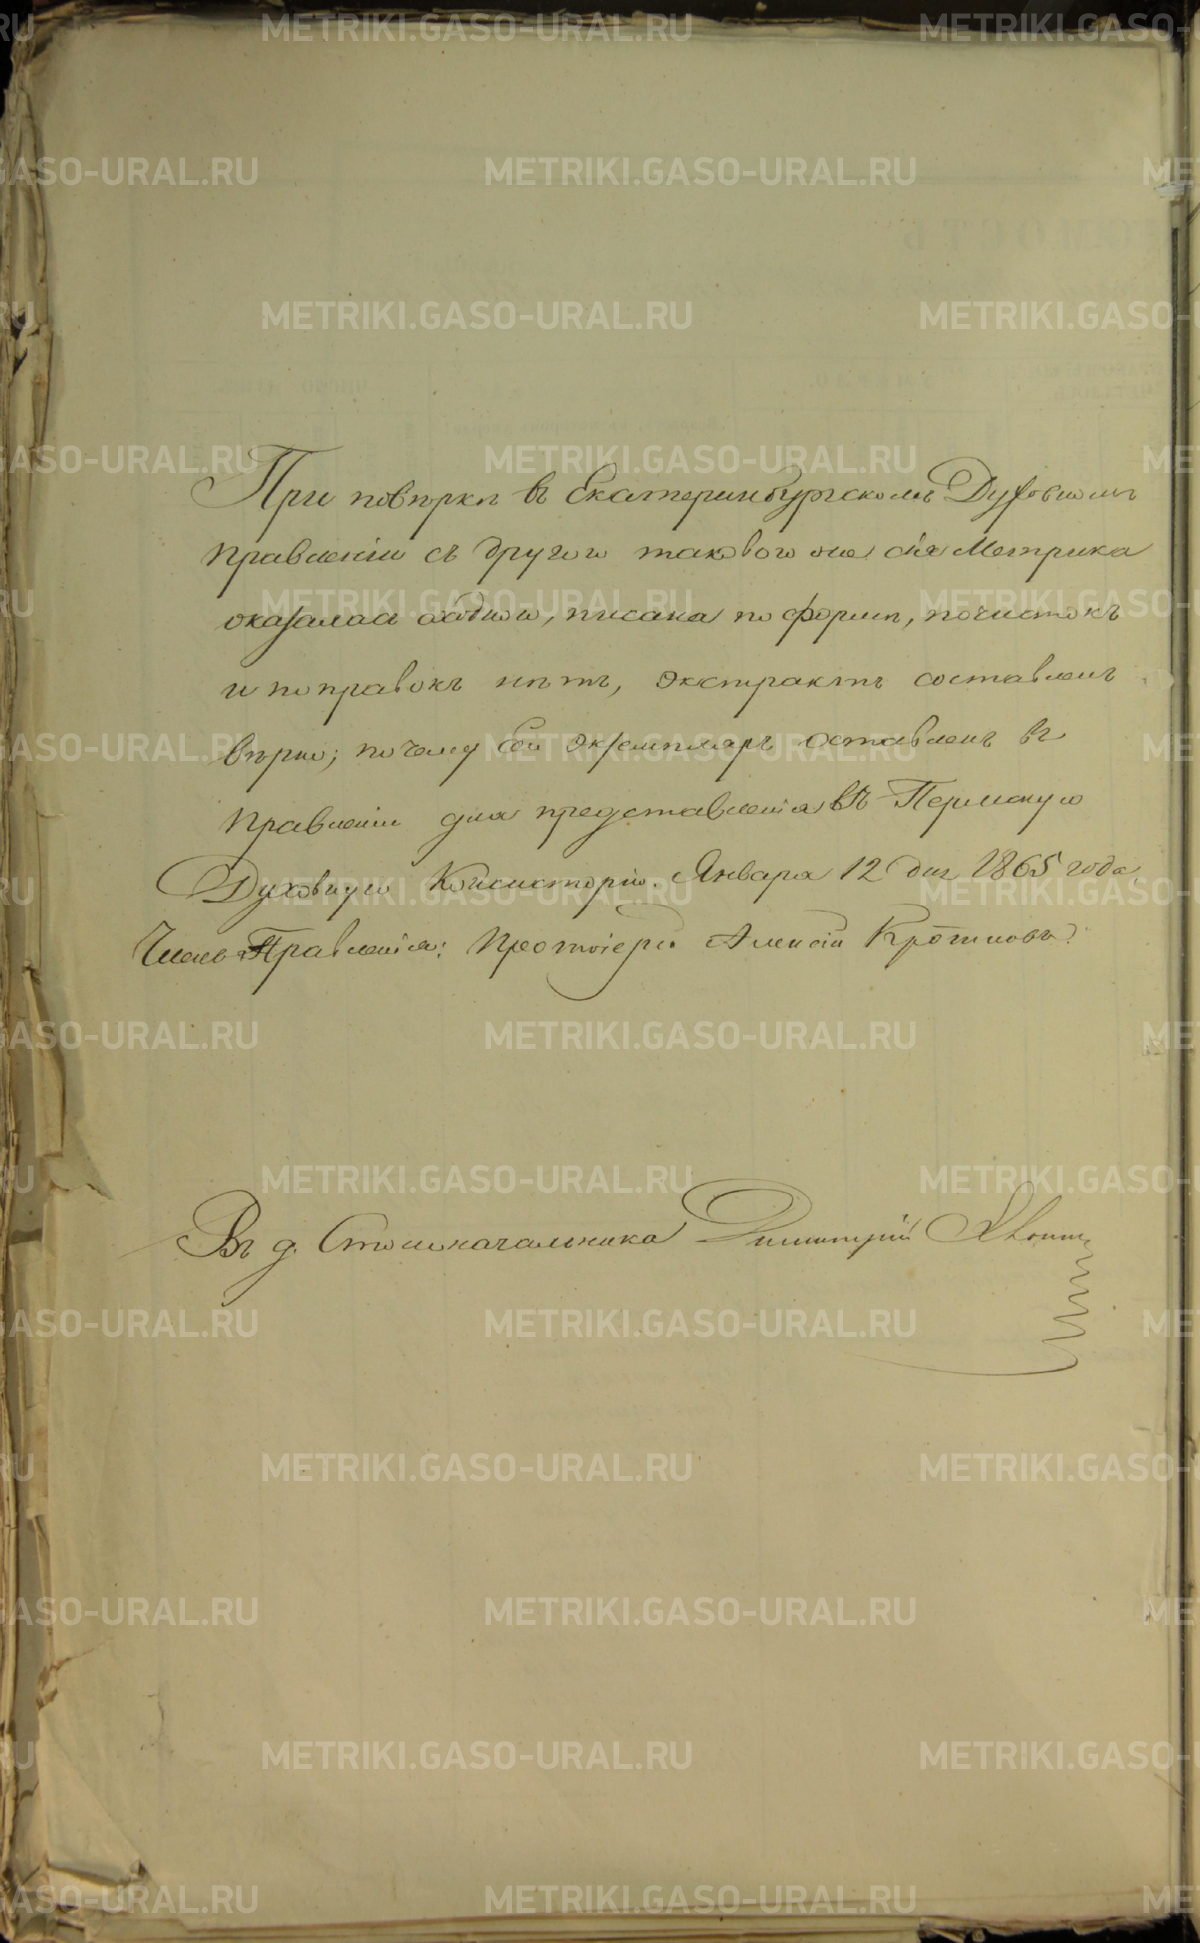 При повѣркѣ въ Екатеринбургскомъ Духовномъ
Правленіи съ другою таковою же сія Метрика
оказалась сходною, писана по формѣ, почистокъ
и поправокъ нѣтъ, экстрактъ составленъ
вѣрно; почему сей экземпляръ оставленъ въ
Правленіи для представленія въ Пермскую
Духовную Консисторію. Января 12 дня 1865 года.
Членъ Правленія: Протоіерей Алексій
Въ д. Столоначальника Димитрій
METRIKI.GASO-URAL.RU